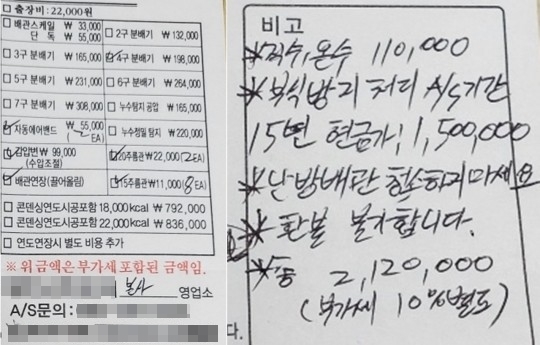 □ 출장비: 22,000원
□ 배관스케일 ₩ 33,000
단 독 ₩ 55,000
□ 2구 분배기 ₩ 132,000
□ 3구 분배기 ₩ 165,000
4구 분배기 ₩ 198,000
□ 5구 분배기 ₩ 231,000
□ 6구 분배기 ₩ 264,000
□ 7구 분배기 ₩ 308,000
□ 누수탐지 공압 ₩ 165,000
자동에어밴드 ₩ 55,000
( 2EA)
□ 누수정밀 탐지 ₩ 220,000
감압변 ₩ 99,000
(수압조절)
20주름관 ₩ 22,000 (2EA)
배관연장(끌어올림)
15주름관 ₩ 11,000 (8EA)
□ 콘덴싱연도시공포함 18,000kcal ₩ 792,000
□ 콘덴싱연도시공포함 22,000kcal ₩ 836,000
□ 연도연장시 별도 비용 추가
※ 위금액은 부가세 포함된 금액임.
본사 영업소
A/S문의:
다.
비고
* 직수,온수 110,000
* 부식방지 처리 A/S기간
15년 현금가! 1,500,000
* 난방배관 청소하지마세요
* 환불 불가합니다.
* 총 2,120,000
(부가세 10%별도)